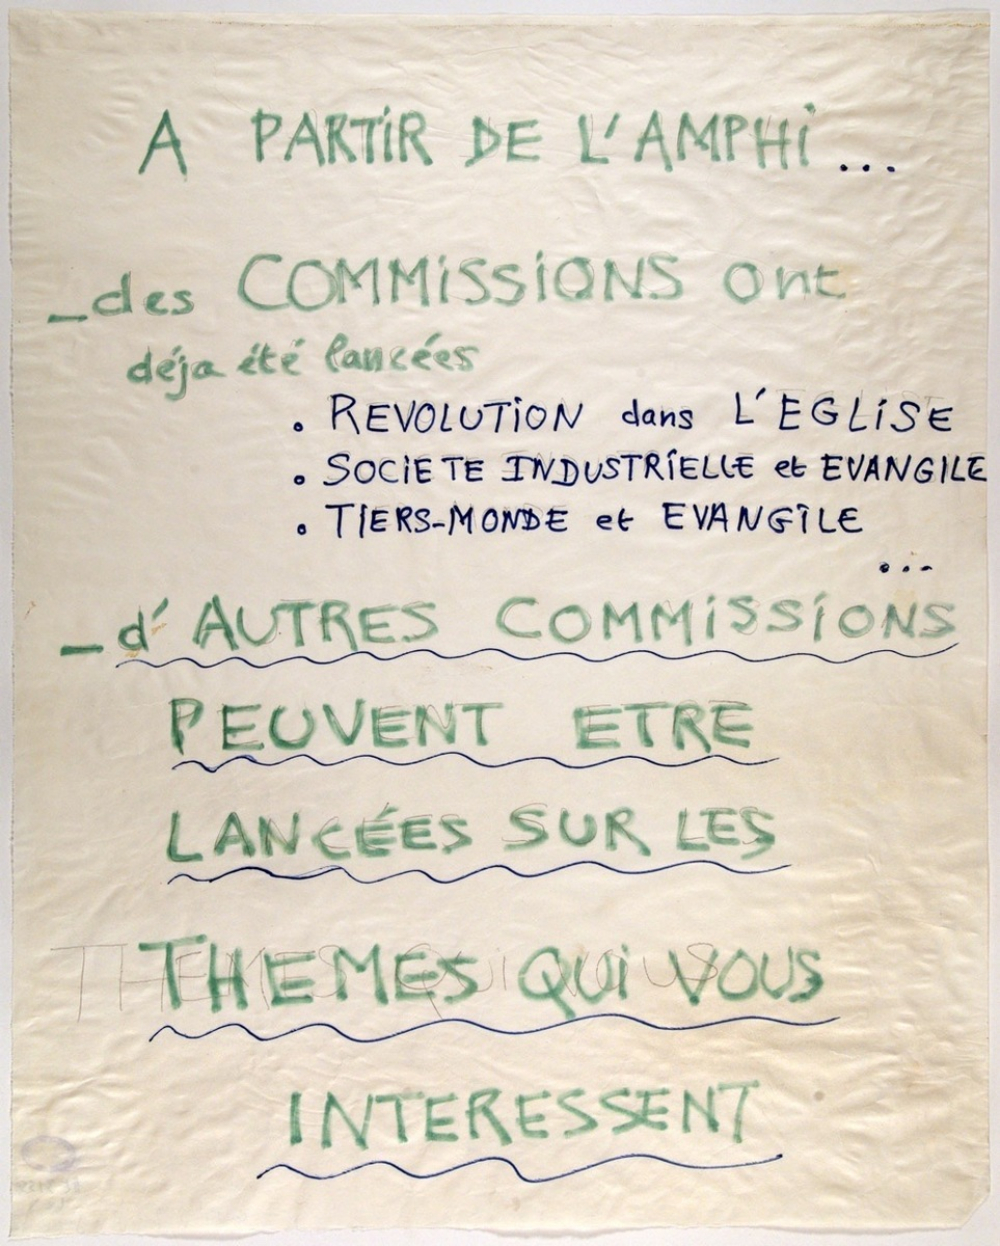 A PARTIR DE L'AMPHI...
_des COMMISSIONS ont
déja été lancées
. REVOLUTION dans L'EGLISE
. SOCIETE INDUSTRIELLE et EVANGILE
. TIERS-MONDE et EVANGILE
...
_d'AUTRES COMMISSIONS
PEUVENT ETRE
LANCÉES SUR LES
THEMES QUI VOUS
INTERESSENT